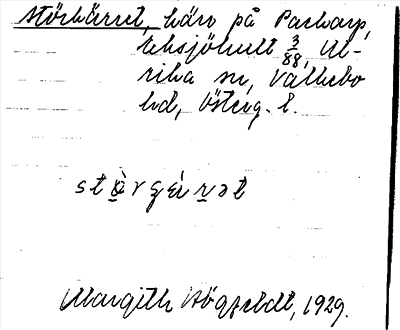 Störkärret, kärr på Packarp,
Eksjöhult 3/88, Ul-
rika sn, Valkebo
hd, Österg. l.
Margith Högfeldt, 1929.